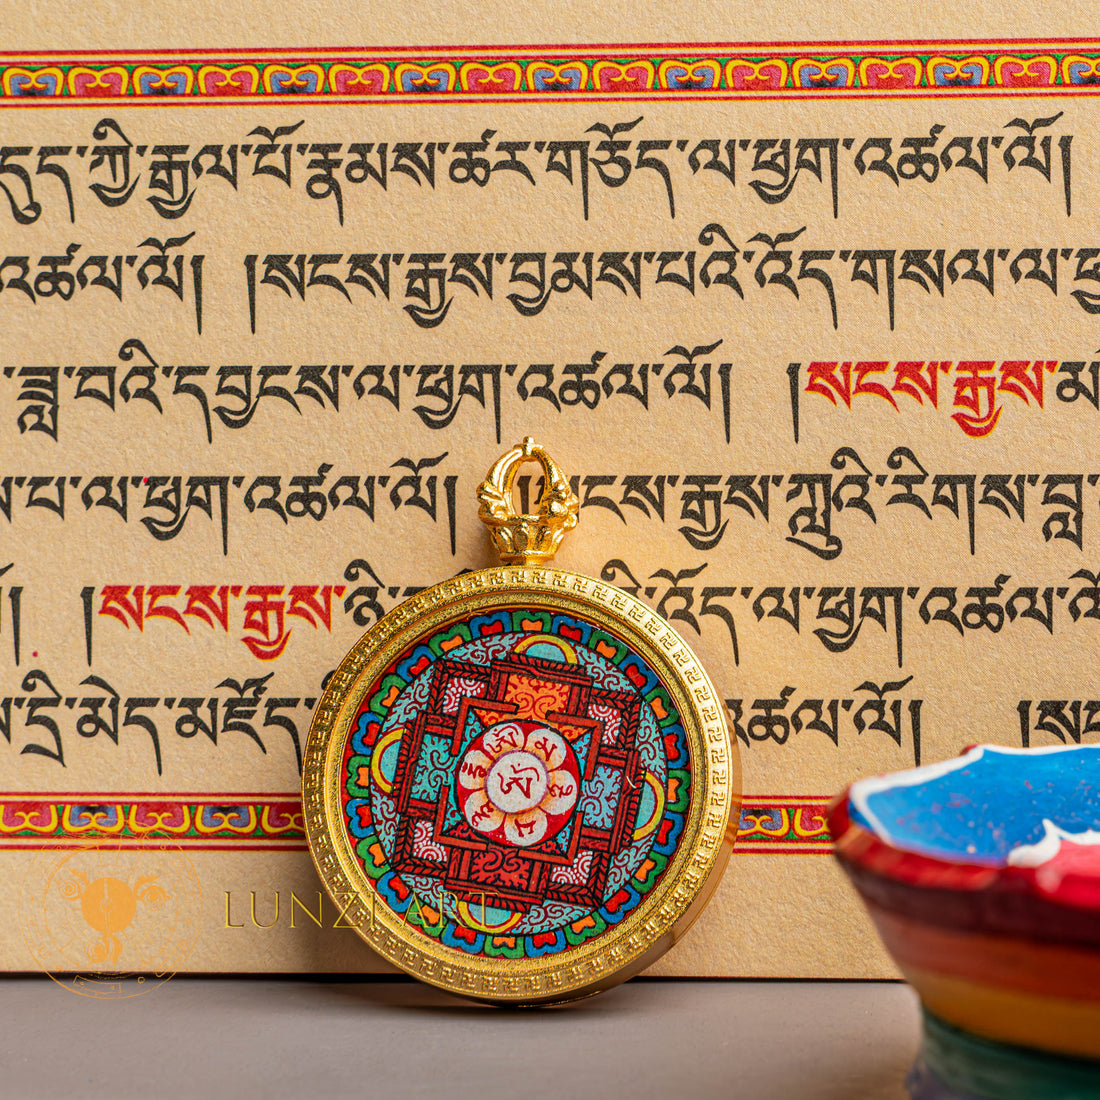 དུད་ཀྱི་རྒྱལ་པོ་རྣམས་ཚར་གཅོད་ལ་ཕྱག་འཚལ་ལོ།
འཚལ་ལོ། །སངས་རྒྱས་བྱམས་པའི་འོད་གསལ་ལ་
ཟླ་བའི་དབྱངས་ལ་ཕྱག་འཚལ་ལོ། །སངས་རྒྱས་
པ་ལ་ཕྱག་འཚལ་ལོ། །སངས་རྒྱས་ཀླུའི་རིགས་
།སངས་རྒྱས་ཉི འོད་ལ་ཕྱག་འཚལ་ལོ།
དྲི་མེད་མཛོད་ འཚལ་ལོ།
LUNZI ART